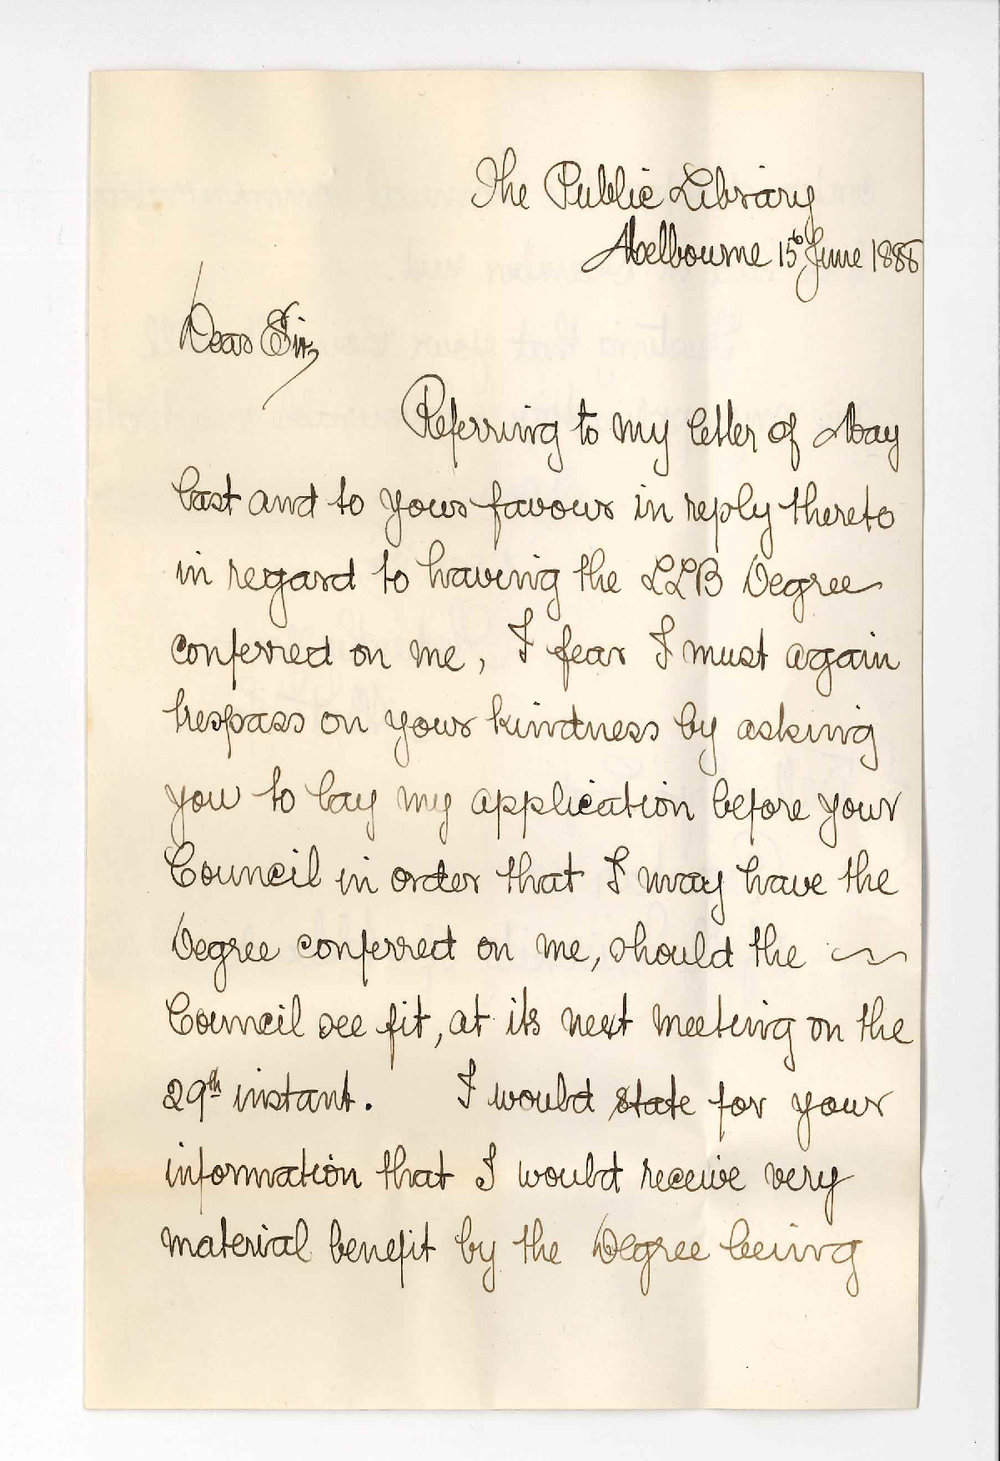 The Public Library
Melbourne 15th June 1888
Dear Sir,
Referring to my letter of May
last and to your favour in reply thereto
in regard to having the LLB Degree
conferred on me, I fear I must again
trespass on your kindness by asking
you to lay my application before your
Council in order that I may have the
Degree conferred on me, should the ~
Council see fit, at its next meeting on the
29th instant. I would state for your
information that I would receive very
material benefit by the Degree being